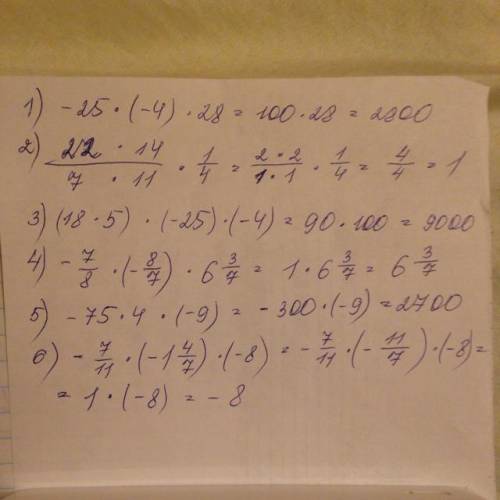 1) -25 · (-4) · 28 = 100 · 28 = 2800
2) (22 · 14)/(7 · 11) · 1/4 = (2 · 2)/(1 · 1) · 1/4 = 4/4 = 1
3) (18 · 5) · (-25) · (-4) = 90 · 100 = 9000
4) - 7/8 · (- 8/7) · 6 3/7 = 1 · 6 3/7 = 6 3/7
5) -75 · 4 · (-9) = -300 · (-9) = 2700
6) - 7/11 · (-1 4/7) · (-8) = - 7/11 · (- 11/7) · (-8) =
= 1 · (-8) = -8